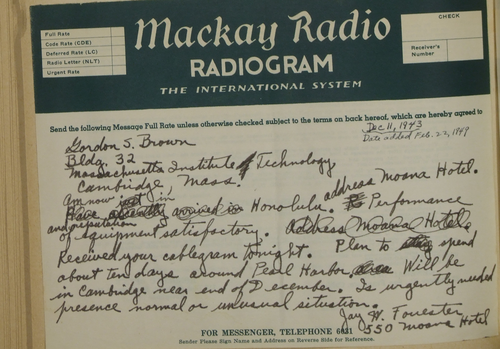 Full Rate
Code Rate (CDE)
Deferred Rate (LC)
Radio Letter (NLT)
Urgent Rate
Mackay Radio
RADIOGRAM
THE INTERNATIONAL SYSTEM
CHECK
Receiver's
Number
Send the following Message Full Rate unless otherwise checked subject to the terms on back hereof, which are hereby agreed to
Dec 11, 1943
Date added Feb. 23, 1949
Gordon S. Brown
Bldg. 32
Massachusetts Institute of Technology
Cambridge, Mass.
Am now just in
Have recently arrived in Honolulu. address Moana Hotel.
Performance
and reputation
of equipment satisfactory. Address Moana Hotel.
Received your cablegram tonight. Plan to stay spend
about ten days around Pearl Harbor area Will be
in Cambridge near end of December. Is urgently needed
presence normal or unusual situation.
Jay W. Forrester
550 Moana Hotel
FOR MESSENGER, TELEPHONE 6031
Sender Please Sign Name and Address on Reverse Side for Reference.